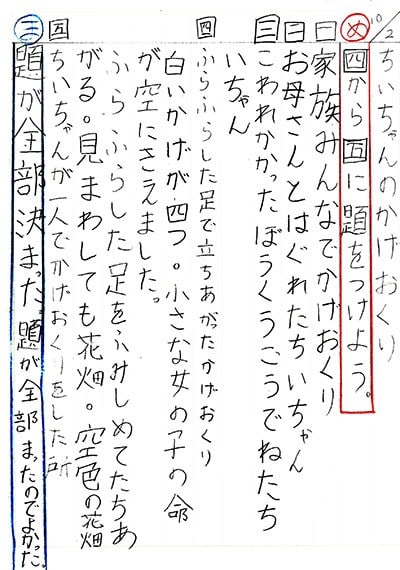 10/2
ちいちゃんのかげおくり
め 四から五に題をつけよう。
一 家族みんなでかげおくり
二 お母さんとはぐれたちいちゃん
三 こわれかかったぼうくうごうでねたち
いちゃん
四 ふらふらした足で立ちあがったかげおくり
白いかげが四つ。小さな女の子の命
が空にきえました。
ふらふらした足をふみしめてたちあ
がる。見まわしても花畑。空色の花畑
五 ちいちゃんが一人でかげおくりをした所
題が全部決まった。題が全部・まったのでよかった。